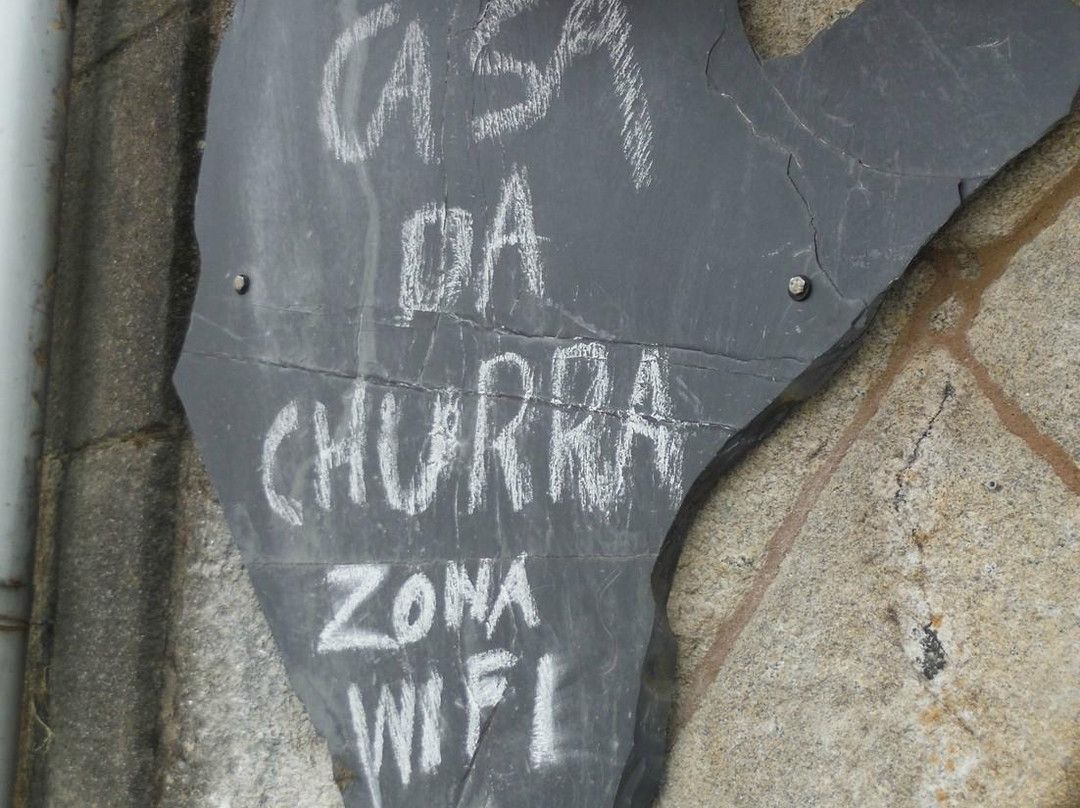 CASA
DA
CHURRA
ZONA
WIFI